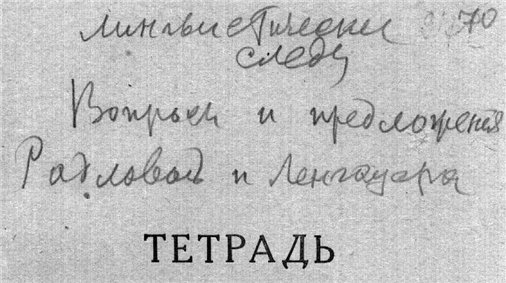 лингвистические
70
следы
Вопросы и предложения
Радловой и Ленгауера
ТЕТРАДЬ